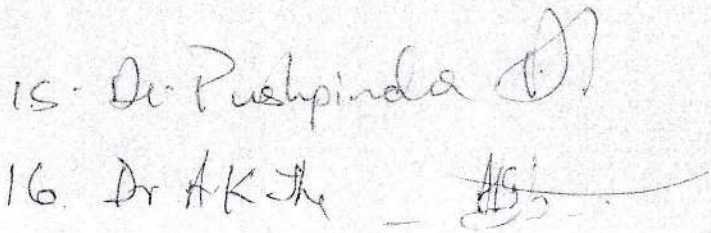 15. Dr. Pushpinda
16. Dr A.K Jha